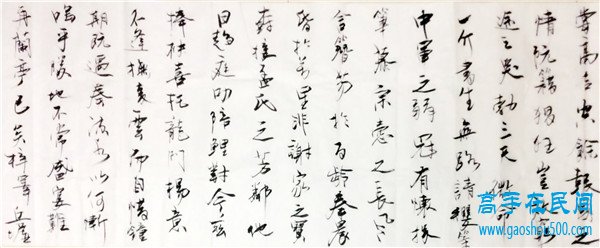 嘗高洁空餘報國之
情阮籍猖狂豈效窮
途之哭勃三尺微命
一介書生無路請纓等終
軍之弱冠有懷投
筆慕宗愨之長風
舍簪笏於百齡奉晨
昏於萬里非謝家之寶
樹接孟氏之芳鄰他
日趨庭叨陪鯉對今茲
捧袂喜托龍門楊意
不逢撫凌雲而自惜鐘
期既遇奏流水以何慚
嗚乎勝地不常盛筵難
再蘭亭已矣梓澤丘墟
高手在民间
www.gaoshou500.com